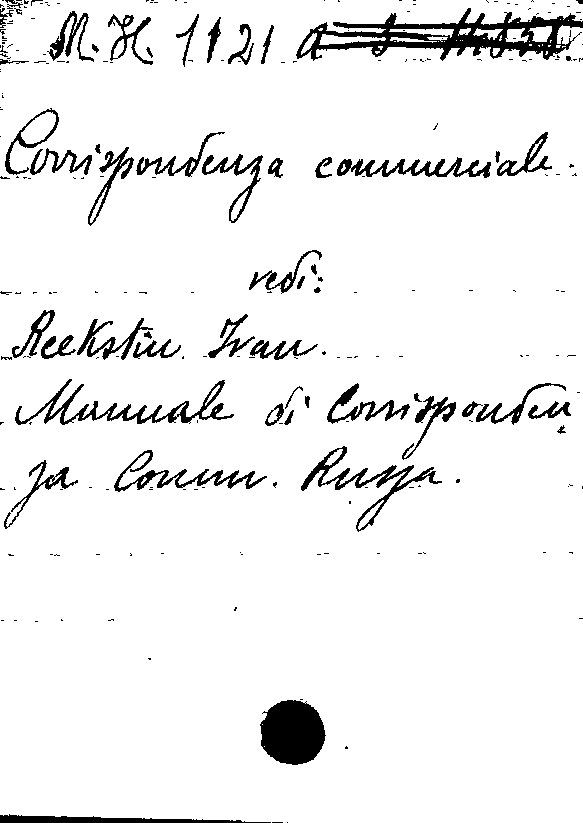 M. H. 1121 a
Corrispondenza commerciale.
vedi:
Reekstin Ivan.
Manuale di Corrisponden
za Comm. Russa.